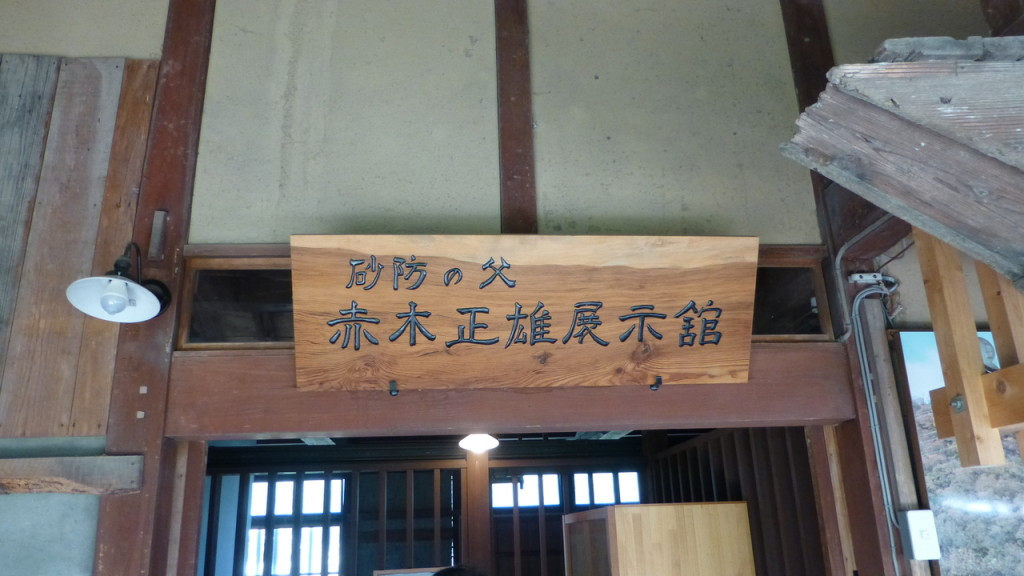 砂防の父
赤木正雄展示舘